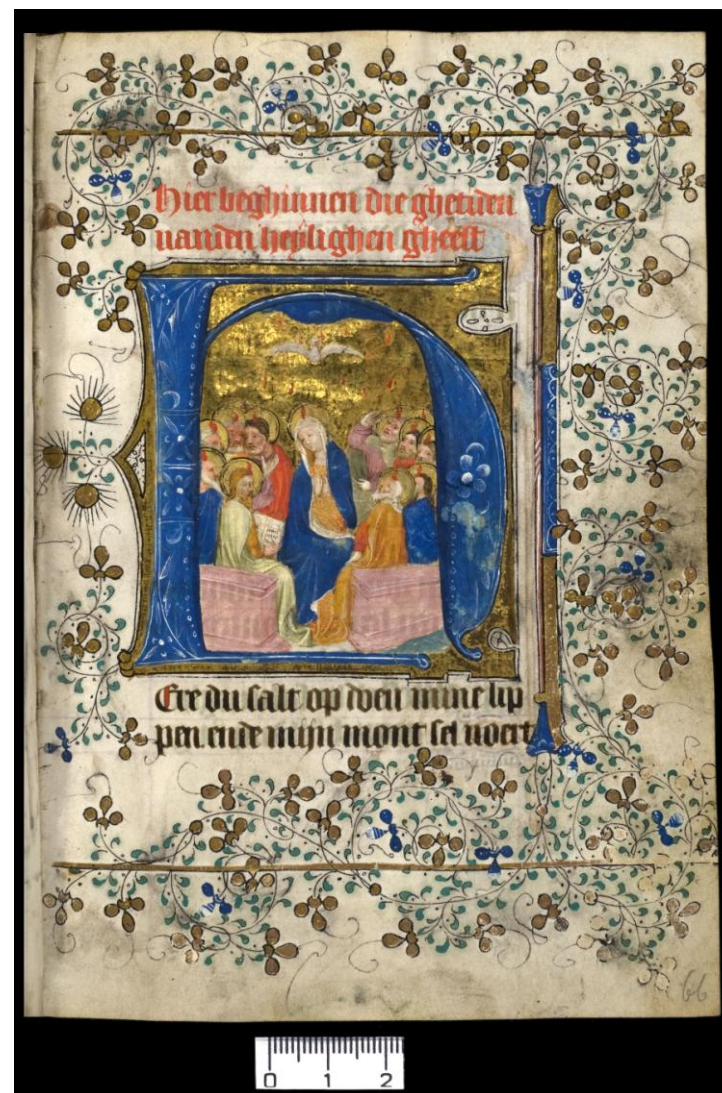 Hier beghinnen die ghetiden
vanden heylighen gheest
H
Ere du salt op doen mine lip
pen ende mijn mont sel voert
66
0 1 2